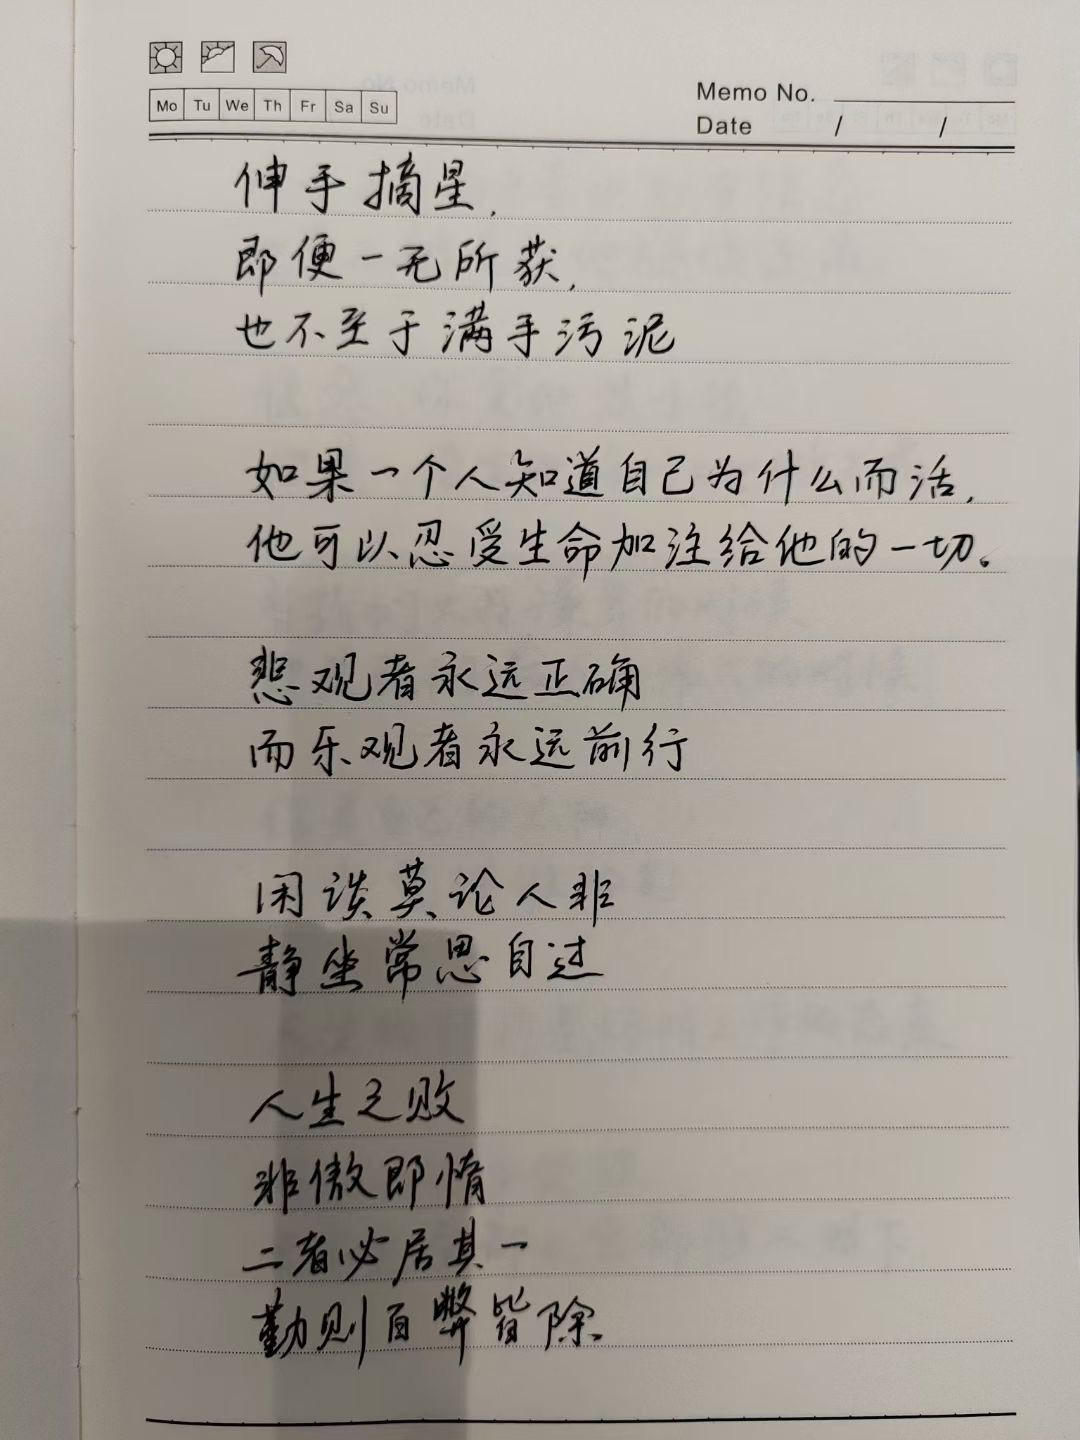 Mo Tu We Th Fr Sa Su
Memo No.
Date / /
伸手摘星,
即便一无所获,
也不至于满手污泥
如果一个人知道自己为什么而活,
他可以忍受生命加注给他的一切。
悲观者永远正确
而乐观者永远前行
闲谈莫论人非
静坐常思自过
人生之败
非傲即惰
二者必居其一
勤则百弊皆除.